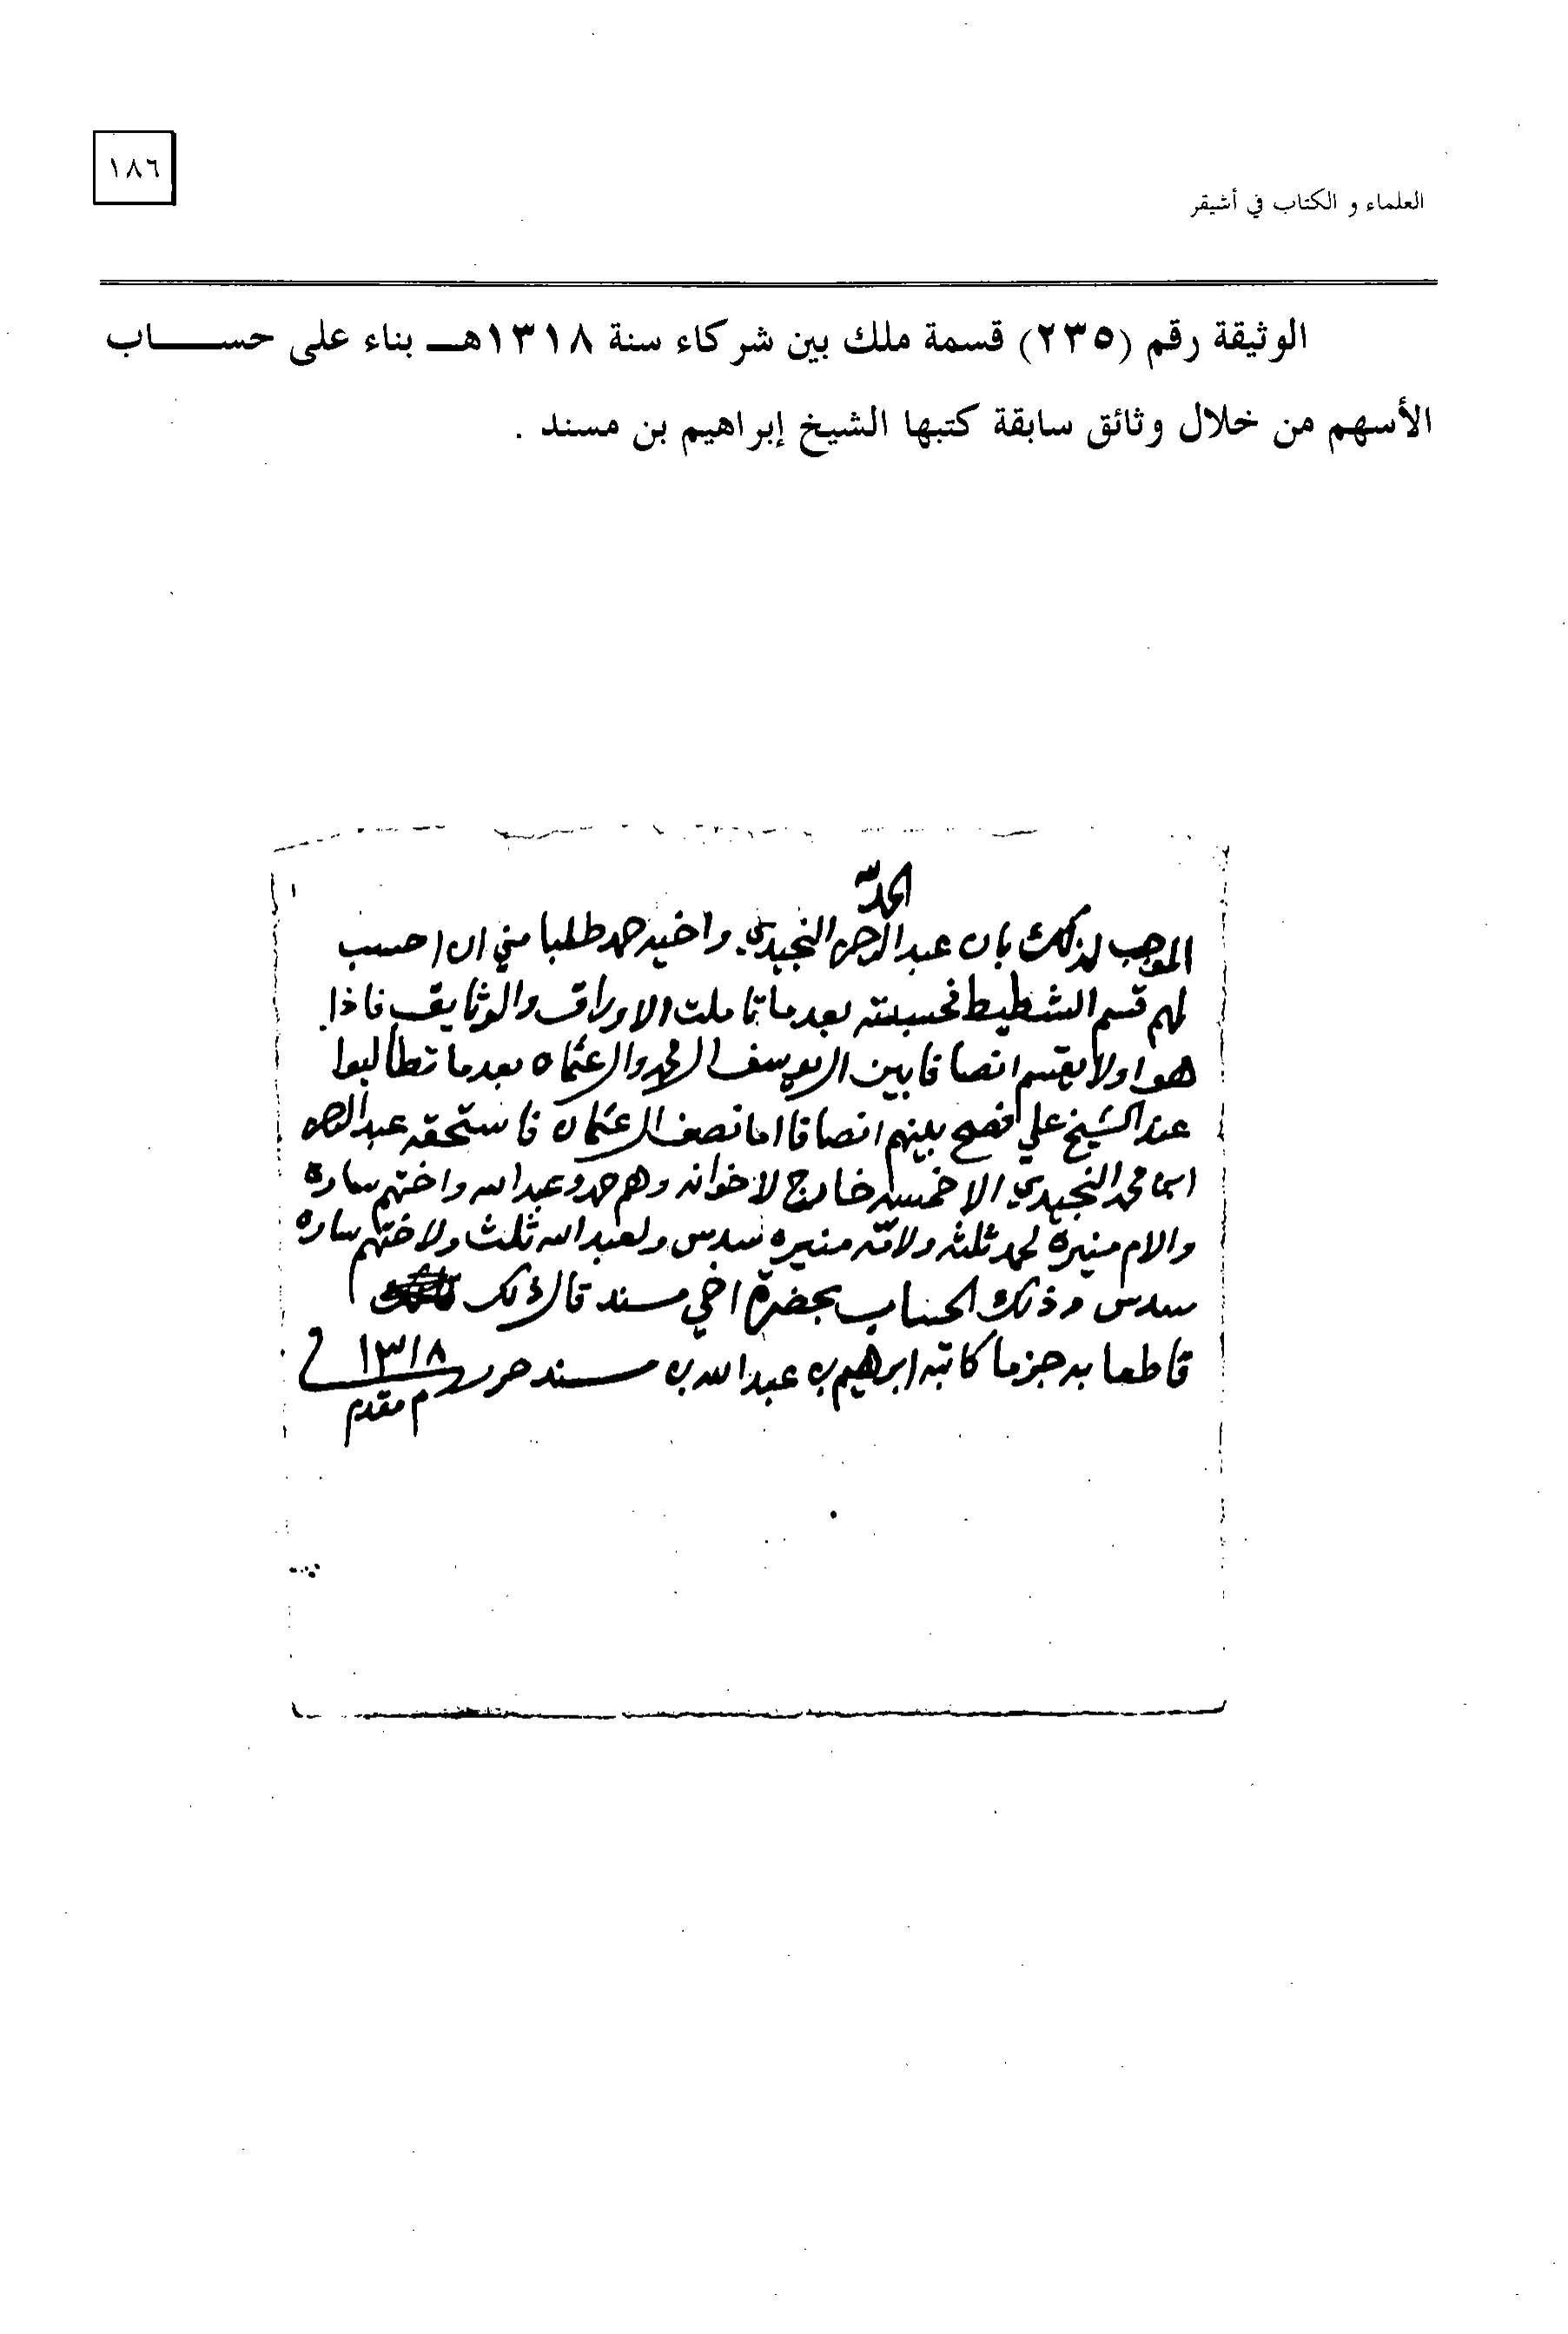 ١٨٦
العلماء و الكتاب في أشيقر
الوثيقة رقم (٢٣٥) قسمة ملك بين شركاء سنة ١٣١٨هـ بناء على حساب
الأسهم من خلال وثائق سابقة كتبها الشيخ إبراهيم بن مسند .
الحمد لله
الموجب لذلك بان عبدالرحمن النجيدي واخيه حمد طلبا مني ان احسب
لهم قسم الشطيط فحسبته بعد ما تاملت الاوراق والوثايق فاذا
هو اولا يقسم انصافا بين اليوسف المحمد وال عثمان بعد ما تطالبوا
عند الشيخ علي فصح بينهم انصافا اما نصف ال عثمان فاستحقه عبدالرحمن
ابن محمد النجيدي الا خمسه خارج لاخوانه وهم حمد وعبدالله واختهم ساره
والام منيرة لحمد ثلثه ولامه منيره سدس ولعبدالله ثلث ولاختهم ساره
سدس وذلك الحساب بحضرة اخي مسند قال ذلك
قاطعا به جزما كاتبه ابرهيم بن عبدالله بن مسند حرر في
١٣١٨
م مقدم